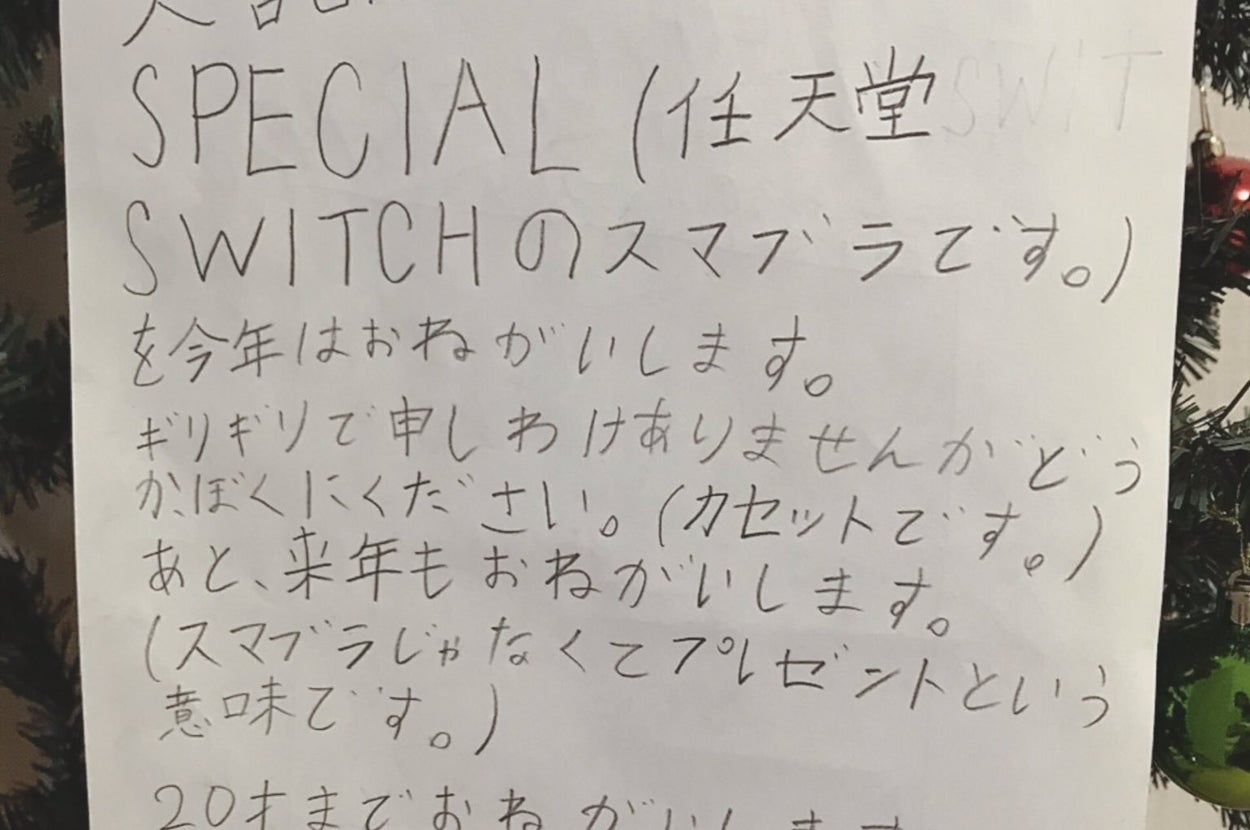 SPECIAL (任天堂 SWIT
SWITCHのスマブラです。)
を今年はおねがいします。
ギリギリで申しわけありませんがどう
か、ぼくにください。(カセットです。)
あと、来年もおねがいします。
(スマブラじゃなくてプレゼントという
意味です。)
20才までおねがいします